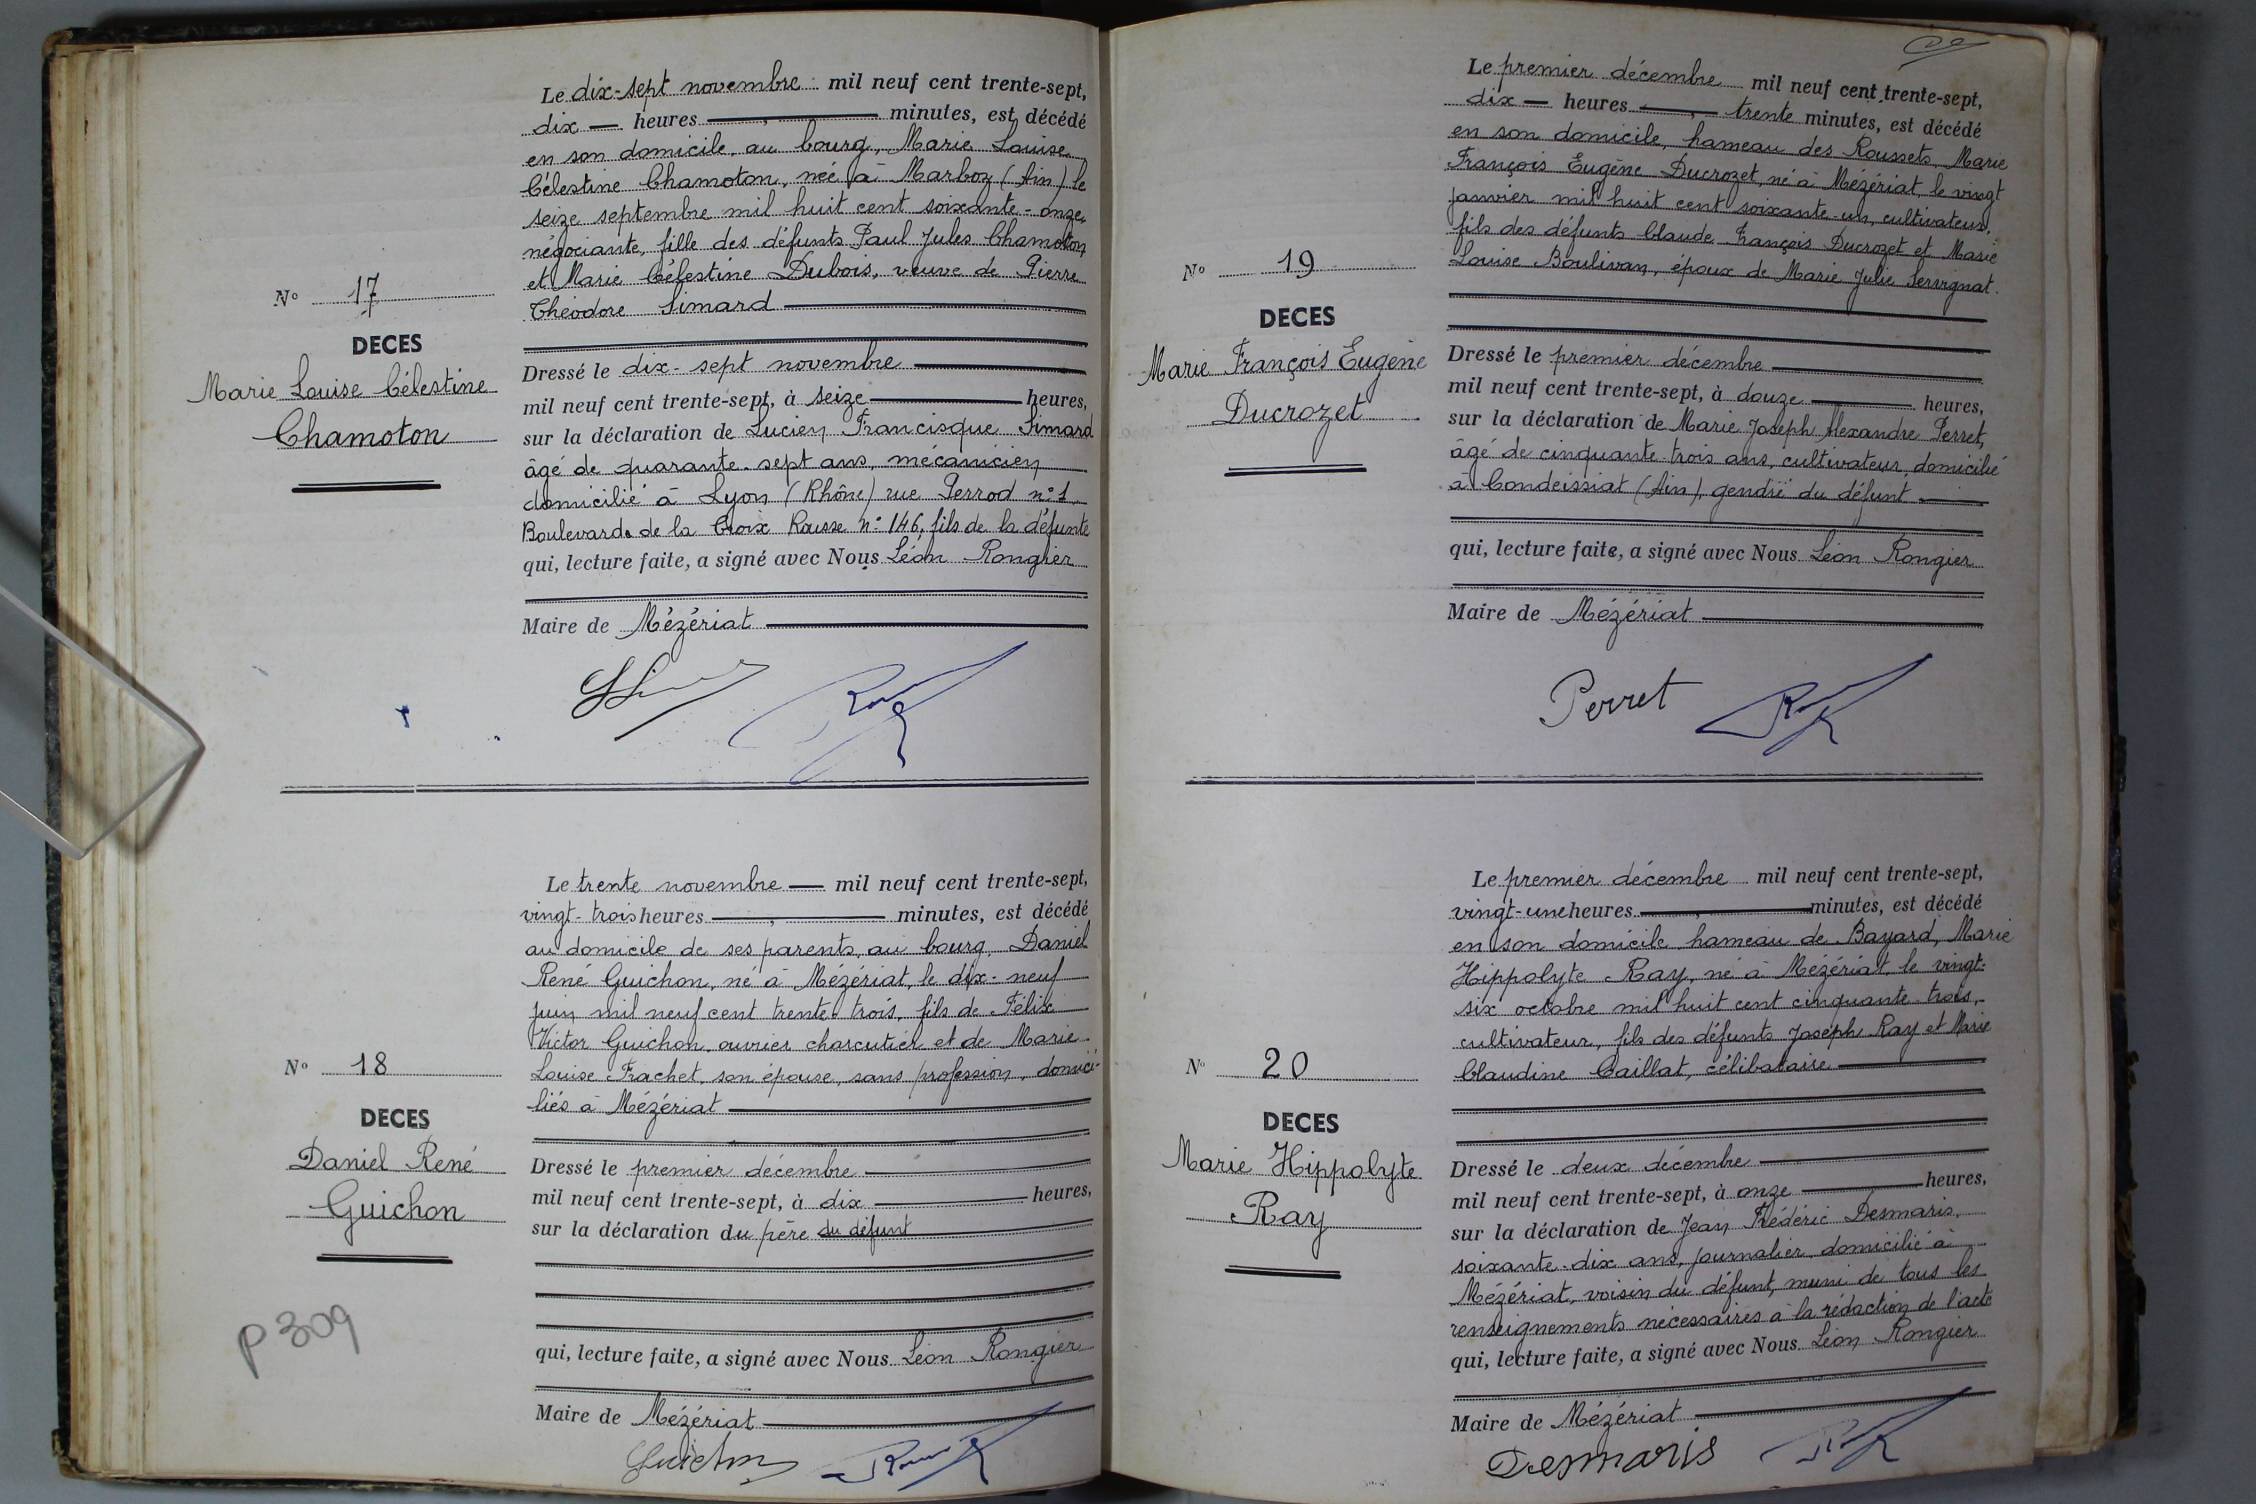 Le dix-sept novembre mil neuf cent trente-sept,
dix heures , minutes, est décédé
en son domicile, au bourg, Marie Louise
Célestine Chamoton, née à Marboz (Ain) le
seize septembre mil huit cent soixante-onze,
négociante, fille des défunts Paul Jules Chamoton
et Marie Célestine Dubois, veuve de Pierre
Théodore Simard
N° 17
DECES
Marie Louise Célestine
Chamoton
Dressé le dix-sept novembre
mil neuf cent trente-sept, à seize heures,
sur la déclaration de Lucien Francisque Simard
âgé de quarante-sept ans, mécanicien
domicilié à Lyon (Rhône) rue Perrod n° 1
Boulevard de la Croix Rousse n° 146, fils de la défunte
qui, lecture faite, a signé avec Nous Léon Rongier
Maire de Mézériat
Le trente novembre mil neuf cent trente-sept,
vingt-trois heures , minutes, est décédé
au domicile de ses parents, au bourg, Daniel
René Guichon, né à Mézériat, le dix-neuf
juin mil neuf cent trente-trois, fils de Félix
Victor Guichon, ouvrier charcutier et de Marie
Louise Frachet, son épouse, sans profession, domici-
liés à Mézériat
N° 18
DECES
Daniel René
Guichon
Dressé le premier décembre
mil neuf cent trente-sept, à dix heures,
sur la déclaration du père du défunt
qui, lecture faite, a signé avec Nous Léon Rongier
Maire de Mézériat
Guichon
p 309
Le premier décembre mil neuf cent trente-sept,
dix heures , trente minutes, est décédé
en son domicile, hameau des Roussets, Marie
François Eugène Ducrozet, né à Mézériat, le vingt
janvier mil huit cent soixante-un, cultivateur,
fils des défunts Claude François Ducrozet et Marie
Louise Boulivan, époux de Marie Julie Servignat.
N° 19
DECES
Marie François Eugène
Ducrozet
Dressé le premier décembre
mil neuf cent trente-sept, à douze heures,
sur la déclaration de Marie Joseph Alexandre Perret,
âgé de cinquante-trois ans, cultivateur, domicilié
à Condeissiat (Ain), gendre du défunt
qui, lecture faite, a signé avec Nous Léon Rongier
Maire de Mézériat
Perret
Le premier décembre mil neuf cent trente-sept,
vingt-une heures , minutes, est décédé
en son domicile hameau de Bayard, Marie
Hippolyte Ray, né à Mézériat, le vingt-
six octobre mil huit cent cinquante-trois,
cultivateur, fils des défunts Joseph Ray et Marie
Claudine Caillat, célibataire
N° 20
DECES
Marie Hippolyte
Ray
Dressé le deux décembre
mil neuf cent trente-sept, à onze heures,
sur la déclaration de Jean Frédéric Desmaris,
soixante-dix ans, journalier, domicilié à
Mézériat, voisin du défunt, muni de tous les
renseignements nécessaires à la rédaction de l'acte
qui, lecture faite, a signé avec Nous Léon Rongier
Maire de Mézériat
Desmaris